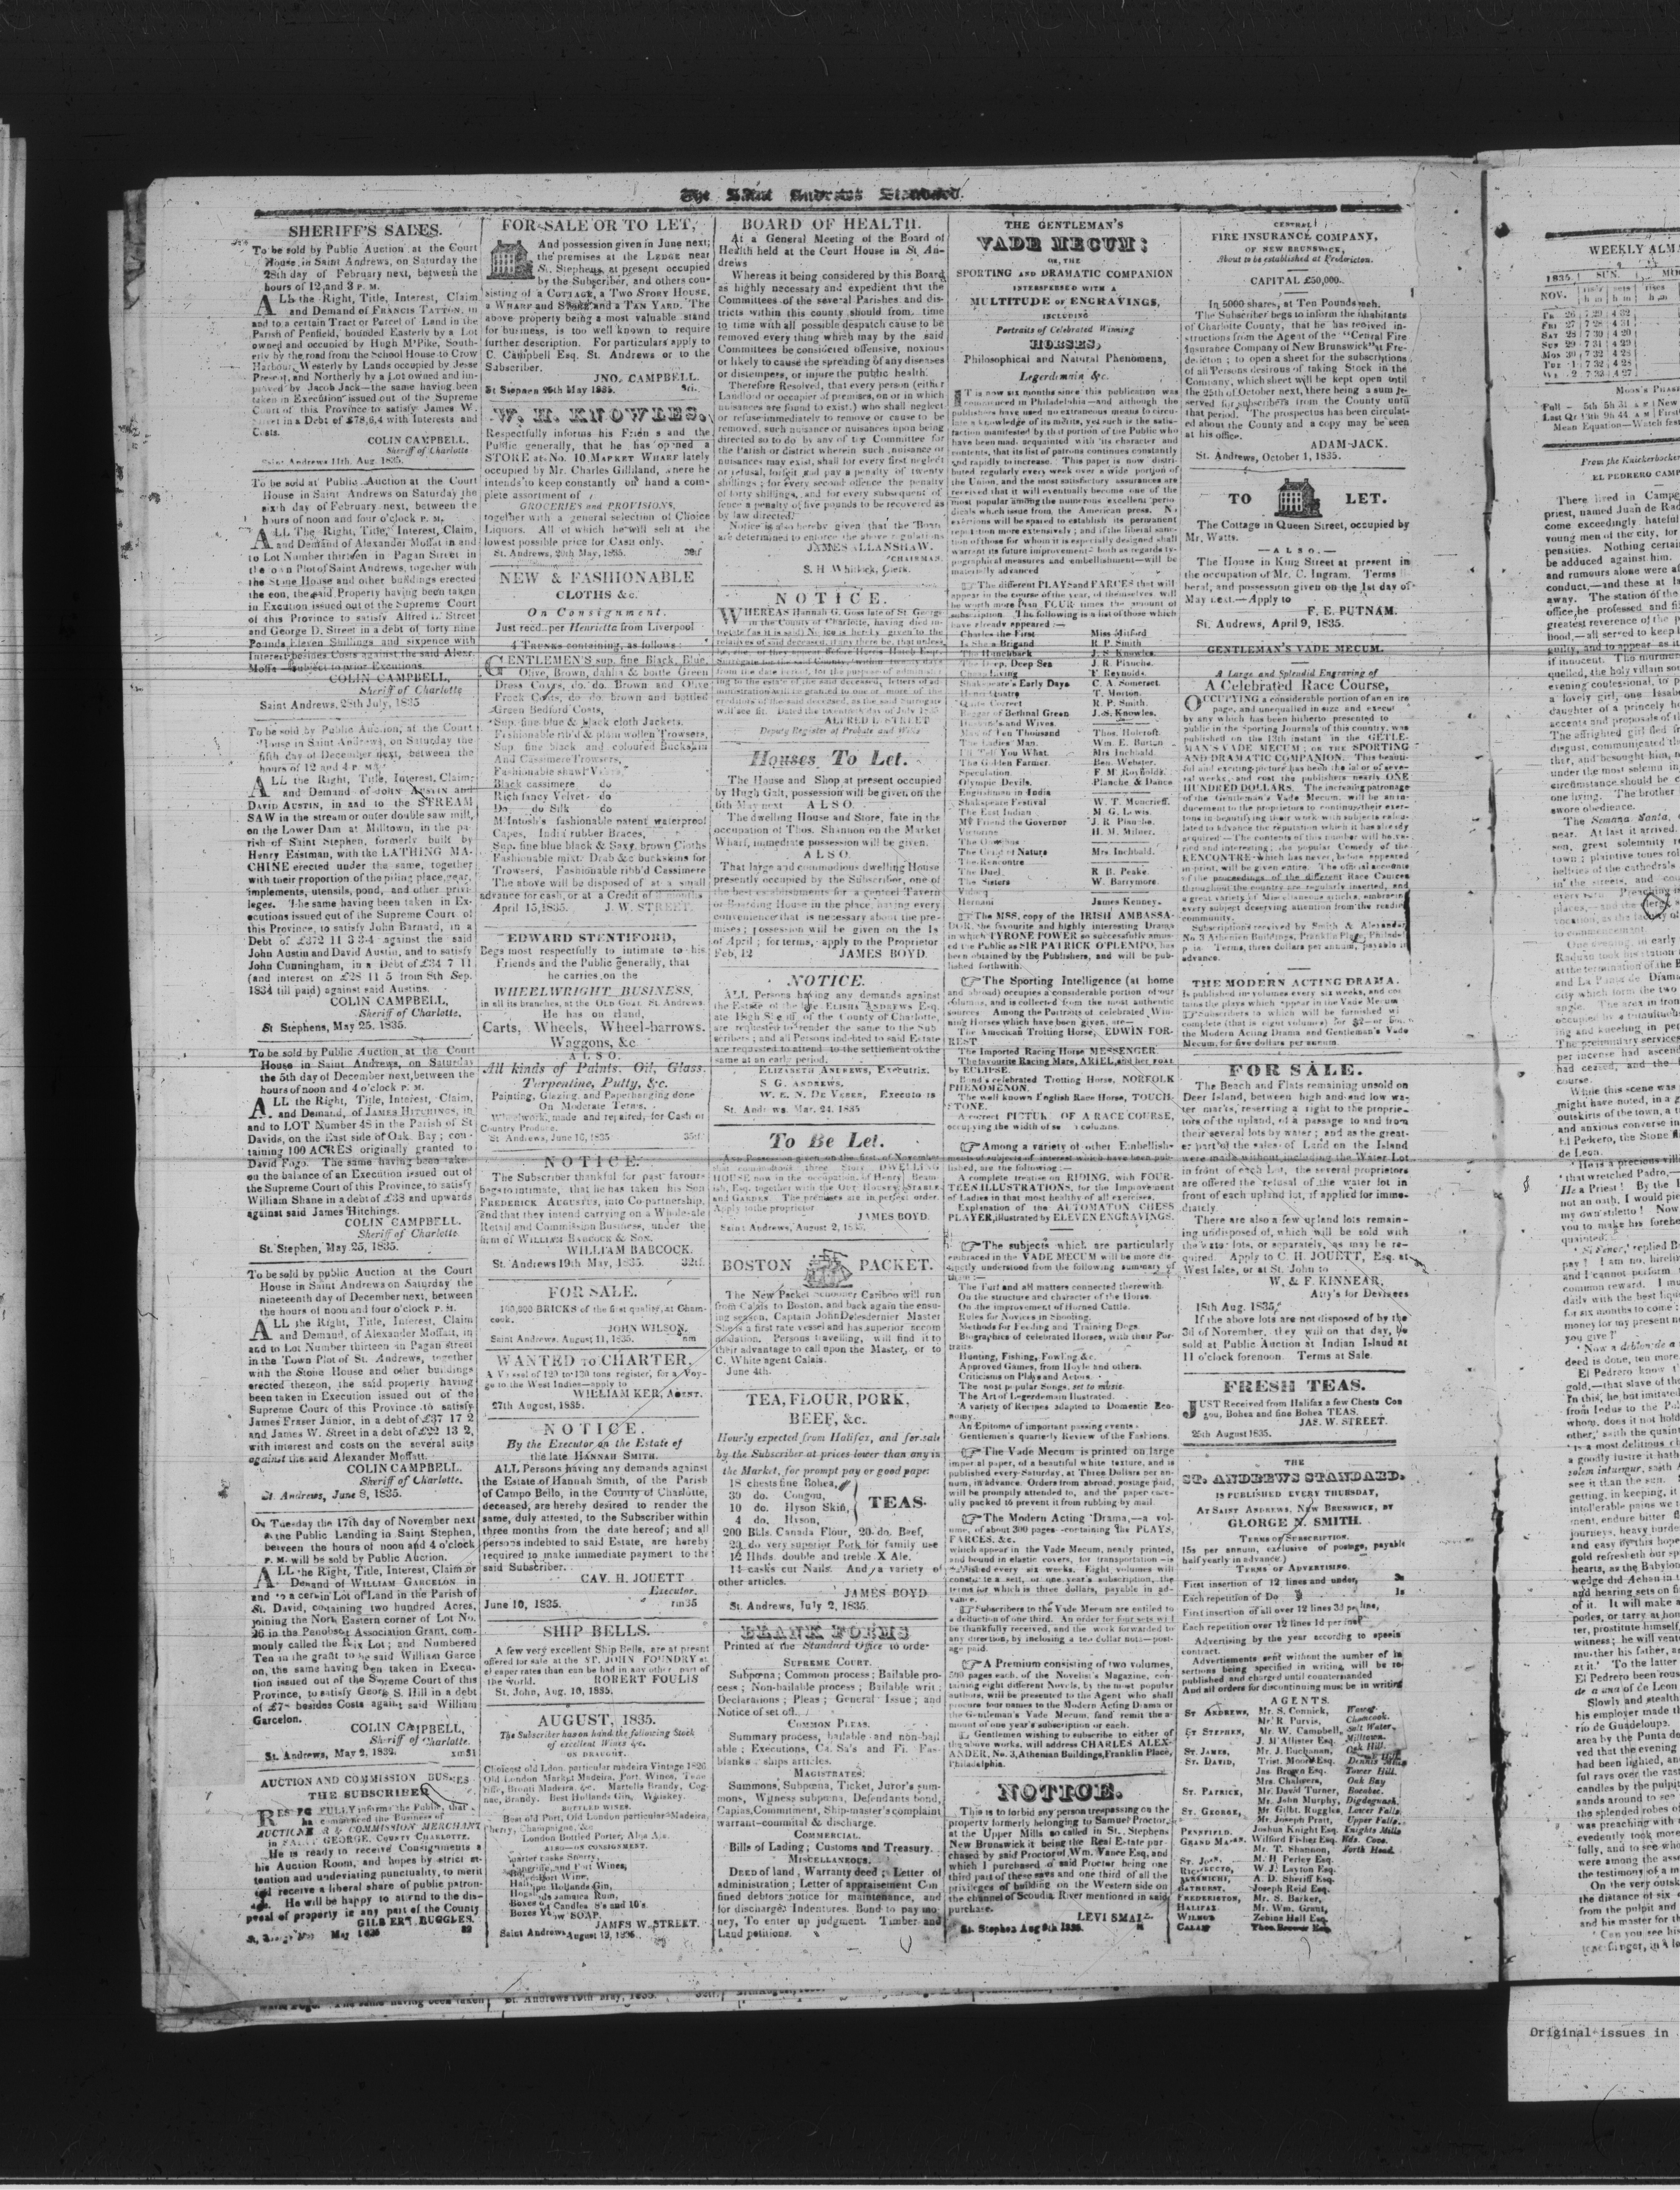 The Saint Andrews Standard.
SHERIFF'S SALES.
To be sold by Public Auction at the Court
House, in Saint Andrews, on Saturday the
28th day of February next, between the
hours of 12 and 3 P. M.
ALL the Right, Title, Interest, Claim
and Demand of FRANCIS TATTON, in
and to a certain Tract or Parcel of Land in the
Parish of Penfield, bounded Easterly by a Lot
owned and occupied by Hugh M'Pike, South-
erly by the road from the School House to Crow
Harbour, Westerly by Lands occupied by Jesse
Prescot, and Northerly by a Lot owned and im-
proved by Jacob Jack—the same having been
taken in Execution issued out of the Supreme
Court of this Province to satisfy James W.
Street in a Debt of £78,6,4 with Interests and
Costs.
COLIN CAMPBELL,
Sheriff of Charlotte
Saint Andrews 11th. Aug. 1835.
To be sold at Public Auction at the Court
House in Saint Andrews on Saturday the
sixth day of February next, between the
hours of noon and four o'clock P. M.
ALL The Right, Title, Interest, Claim,
and Demand of Alexander Moffat in and
to Lot Number thirteen in Pagan Street in
the Town Plot of Saint Andrews, together with
the Stone House and other buildings erected
the eon, the said Property having been taken
in Excution issued out of the Supreme Court
of this Province to satisfy Alfred L. Street
and George D. Street in a debt of forty nine
Pounds Eleven Shillings and sixpence with
Interest besides Costs against the said Alexr.
Moffa—Subject to prior Excutions.
COLIN CAMPBELL,
Sheriff of Charlotte
Saint Andrews, 28th July, 1835
To be sold by Public Auction, at the Court
House in Saint Andrews, on Saturday the
fifth day of December next, between the
hours of 12 and 4 P. M.
ALL the Right, Title, Interest, Claim;
and Demand of JOHN AUSTIN and
DAVID AUSTIN, in and to the STREAM
SAW in the stream or outer double saw mill,
on the Lower Dam at Milltown, in the pa-
rish of Saint Stephen, formerly built by
Henry Eastman, with the LATHING MA-
CHINE erected under the same, together
with their proportion of the piling place, gear,
implements, utensils, pond, and other privi-
leges. The same having been taken in Ex-
ecutions issued out of the Supreme Court of
this Province, to satisfy John Barnard, in a
Debt of £372 11 3 3-4 against the said
John Austin and David Austin, and to satisfy
John Cunningham, in a Debt of £34 7 11
(and interest on £28 11 5 from 8th Sep.
1834 till paid) against said Austins.
COLIN CAMPBELL,
Sheriff of Charlotte.
St Stephens, May 25, 1835.
To be sold by Public Auction, at the Court
House in Saint Andrews, on Saturday
the 5th day of December next, between the
hours of noon and 4 o'clock P. M.
ALL the Right, Title, Interest, Claim,
and Demand, of JAMES HITCHINGS, in
and to LOT Number 48 in the Parish of St
Davids, on the East side of Oak Bay; con-
taining 100 ACRES originally granted to
David Fogo. The same having been take
on the balance of an Execution issued out of
the Supreme Court of this Province, to satisfy
William Shane in a debt of £38 and upwards
against said James Hitchings.
COLIN CAMPBELL.
Sheriff of Charlotte.
St. Stephen, May 25, 1835.
To be sold by public Auction at the Court
House in Saint Andrews on Saturday the
nineteenth day of December next, between
the hours of noon and four o'clock P. M.
ALL the Right, Title, Interest, Claim
and Demand, of Alexander Moffatt, in
and to Lot Number thirteen in Pagan street
in the Town Plot of St. Andrews, together
with the Stone House and other buildings
erected thereon, the said property having
been taken in Execution issued out of the
Supreme Court of this Province to satisfy
James Fraser Junior, in a debt of £37 17 2
and James W. Street in a debt of £22 13 2,
with interest and costs on the several suits
against the said Alexander Moffatt.
COLIN CAMPBELL.
Sheriff of Charlotte.
St. Andrews, June 8, 1835.
On Tuesday the 17th day of November next
at the Public Landing in Saint Stephen,
between the hours of noon and 4 o'clock
P. M. will be sold by Public Auction.
ALL the Right, Title, Interest, Claim or
Demand of WILLIAM GARCELON in
and to a certain Lot of Land in the Parish of
St. David, containing two hundred Acres,
joining the North Eastern corner of Lot No.
26 in the Penobscot Association Grant, com-
monly called the Rix Lot; and Numbered
Ten in the grant to he said William Garce
on, the same having been taken in Execu-
tion issued out of the Supreme Court of this
Province, to satisfy George S. Hill in a debt
of £75 besides Costs against said William
Garcelon.
COLIN CAMPBELL,
Sheriff of Charlotte.
St. Andrews, May 2, 1832.
AUCTION AND COMMISSION
THE SUBSCRIBER
RESPECTFULLY informs the Public, that
he commenced the Business of
AUCTIONEER & COMMISSION MERCHANT
in SAINT GEORGE, COUNTY CHARLOTTE.
He is ready to receive Consignments a
his Auction Room, and hopes by strict at-
tention and undeviating punctuality, to merit
and receive a liberal share of public patron-
age. He will be happy to attend to the dis-
posal of property in any part of the County
GILBERT RUGGLES.
FOR SALE OR TO LET,
And possession given in June next;
the premises at the LEDGE near
St. Stephens, at present occupied
by the Subscriber, and others con-
sisting of a COTTAGE, a TWO STORY HOUSE,
a WHARF and STORE and a TAN YARD. The
above property being a most valuable stand
for business, is too well known to require
further description. For particulars apply to
C. Campbell Esq. St. Andrews or to the
Subscriber.
JNO. CAMPBELL.
St Stephen 25th May 1835.
W. H. KNOWLES,
Respectfully informs his Frien s and the
Public generally, that he has opened a
STORE at No. 10 MARKET WHARF lately
occupied by Mr. Charles Gilliland, where he
intends to keep constantly on hand a com-
plete assortment of
GROCERIES and PROVISIONS,
together with a general selection of Choice
Liquors. All of which he will sell at the
lowest possible price for Cash only.
St. Andrews, 20th May, 1835.
NEW & FASHIONABLE
CLOTHS &c.
On Consignment.
Just recd. per Henrietta from Liverpool
4 TRUNKS containing, as follows:
GENTLEMEN'S sup. fine Black, Blue,
Olive, Brown, dahlia & bottle Green
Dress Coats, do. do. Brown and Olive
Frock Coats, do do brown and bottled
Green Bedford Coats,
Sup. fine blue & black cloth Jackets,
Fashionable rib'd & plain wollen Trowsers,
Sup. fine black and coloured Buckskin
And Cassimere Trowsers,
Fashionable shawl Vests,
Black cassimere do
Rich fancy Velvet do
Do do Silk do
M'Intosh's fashionable patent waterproof
Capes, India rubber Braces,
Sup. fine blue black & Saxy. brown Cloths
Fashionable mixt. Drab &c buckskins for
Trowsers, Fashionable ribb'd Cassimere
The above will be disposed of at a small
advance for cash, or at a Credit of months
April 15, 1835. J. W. STREET.
EDWARD STENTIFORD,
Begs most respectfully to intimate to his
Friends and the Public generally, that
he carries on the
WHEELWRIGHT BUSINESS,
in all its branches, at the OLD GOAL St. Andrews.
He has on Hand,
Carts, Wheels, Wheel-barrows.
Waggons, &c
ALSO.
All kinds of Paints. Oil, Glass.
Turpentine, Putty, &c.
Painting, Glazing, and Paperhanging done
On Moderate Terms.
Wheelwork, made and repaired, for Cash or
Country Produce.
St Andrews, June 16, 1835
NOTICE.
The Subscriber thankful for past favours
begs to intimate, that he has taken his Son
FREDERICK AUGUSTUS, into Co Partnership,
and that they intend carrying on a Wholesale
Retail and Commission Business, under the
firm of WILLIAM BABCOCK & SON.
WILLIAM BABCOCK.
St. Andrews 19th May, 1835. 32tf.
FOR SALE.
100,000 BRICKS of the first quality, at Cham-
cook.
JOHN WILSON.
Saint Andrews. August 11, 1835.
WANTED TO CHARTER,
A Vessel of 120 to 130 tons register, for a Voy-
ge to the West Indies—apply to
WILLIAM KER, AGENT.
27th August, 1835.
NOTICE.
By the Executor on the Estate of
the late HANNAH SMITH.
ALL Persons having any demands against
the Estate of Hannah Smith, of the Parish
of Campo Bello, in the County of Charlotte,
deceased, are hereby desired to render the
same, duly attested, to the Subscriber within
three months from the date hereof; and all
persons indebted to said Estate, are hereby
required to make immediate payment to the
said Subscriber.
CAV. H. JOUETT
Executor.
June 10, 1835.
SHIP BELLS.
A few very excellent Ship Bells, are at present
offered for sale at the ST. JOHN FOUNDRY at
cheaper rates than can be had in any other part of
the world. ROBERT FOULIS
St. John, Aug. 10, 1835.
AUGUST, 1835.
The Subscriber has on hand the following Stock
of excellent Wines &c.
ON DRAUGHT.
Choicest old Ldon. particular madeira Vintage 1826
Old London Market Madeira, Port. Wines, Tene
riffe, Bronti Madeira, &c. Martells Brandy, Cog
nac, Brandy. Best Hollands Gin, Whiskey.
BOTTLED WINES.
Best old Port, Old London particular Madeira,
Sherry, Champaigne, &c
London Bottled Porter, Also Ale.
ALSO—ON CONSIGNMENT.
Quarter casks Sherry,
Wine,
Hollands Gin,
Jamaica Rum,
Candles 8's and 10's.
SOAP.
JAMES W. STREET.
Saint Andrews August 13, 1835.
BOARD OF HEALTH.
At a General Meeting of the Board of
Health held at the Court House in St. An-
drews
Whereas it being considered by this Board
as highly necessary and expedient that the
Committees of the several Parishes and dis-
tricts within this county should from time
to time with all possible despatch cause to be
removed every thing which may by the said
Committees be considered offensive, noxious
or likely to cause the spreading of any diseases
or distempers, or injure the public health.
Therefore Resolved, that every person (either
Landlord or occupier of premises, on or in which
nuisances are found to exist.) who shall neglect
or refuse immediately to remove or cause to be
removed, such nuisance or nuisances upon being
directed so to do by any of the Committee for
the Parish or district wherein such nuisance or
nuisances may exist, shall for every first neglect
or refusal, forfeit and pay a penalty of twenty
shillings; for every second offence the penalty
of forty shillings, and for every subsequent of
fence a penalty of five pounds to be recovered as
by law directed.
Notice is also hereby given that the Board
are determined to enforce the above regulations
JAMES ALLANSHAW.
CHAIRMAN.
S. H Whitlock, Clerk.
NOTICE.
WHEREAS Hannah G. Goss late of St. George
in the County of Charlotte, having died in-
testate (as it is said) Notice is hereby given to the
relatives of said deceased, if any there be, that unless
he, she, or they appear before Harris Hatch Esq.
Surrogate for the said County, within twenty days
from the date hereof, for the purpose of administer-
ing to the estate of the said deceased, letters of ad
ministration will be granted to one or more of the
creditors of the said deceased, as the said Surrogate
will see fit. Dated the twentieth day of July 1835
ALFRED L STREET
Deputy Register of Probate and Wills
Houses To Let.
The House and Shop at present occupied
by Hugh Galt, possession will be given on the
6th May next ALSO.
The dwelling House and Store, late in the
occupation of Thos. Shannon on the Market
Wharf, immediate possession will be given.
ALSO.
That large and commodious dwelling House
presently occupied by the Subscriber, one of
the best establishments for a genteel Tavern
or Boarding House in the place, having every
convenience that is necessary about the pre-
mises; possession will be given on the 1s
of April; for terms, apply to the Proprietor
Feb, 12 JAMES BOYD.
NOTICE.
ALL Persons having any demands against
the Estate of the late ELISHA ANDREWS Esq.
late High Sheriff of the County of Charlotte,
are requested to render the same to the Sub
scribers; and all Persons indebted to said Estate
are requested to attend to the settlement of the
same at an early period.
ELIZABETH ANDREWS, Executrix.
S G. ANDREWS,
W. E. N. DE VEBER, Executo rs
St. Andrews. Mar. 24. 1835
To Be Let.
And Possession given on the first of November
that commodious three Story DWELLING
HOUSE now in the occupation of Henry Beam-
ish, Esq. together with the Out Houses, STABLE
and GARDEN. The premises are in perfect order.
Apply to the proprietor
JAMES BOYD.
Saint Andrews, August 2, 1835.
BOSTON PACKET.
The New Packet Schooner Cariboo will run
from Calais to Boston, and back again the ensu-
ing season, Captain John Delesdernier Master
She is a first rate vessel and has superior accom
modation. Persons travelling, will find it to
their advantage to call upon the Master, or to
C. White agent Calais.
June 4th.
TEA, FLOUR, PORK,
BEEF, &c.
Hourly expected from Halifax, and for sale
by the Subscriber at prices lower than any in
the Market, for prompt pay or good paper
18 chests fine Bohea,
30 do. Congou,
10 do. Hyson Skin,
4 do. Hyson,
TEAS.
200 Blls. Canada Flour, 20 do. Beef,
23 do very superior Pork for family use
12 Hhds. double and treble X Ale.
14 casks cut Nails. And a variety of
other articles.
JAMES BOYD
St. Andrews, July 2, 1835.
BLANK FORMS
Printed at the Standard Office to order
SUPREME COURT.
Subpœna; Common process; Bailable pro-
cess; Non-bailable process; Bailable writ;
Declarations; Pleas; General Issue; and
Notice of set off.
COMMON PLEAS.
Summary process, bailable and non-bail
able; Executions, Ca. Sa's and Fi. Fas-
blanks ships articles.
MAGISTRATES;
Summons, Subpœna, Ticket, Juror's sum-
mons, Witness subpœna, Defendants bond,
Capias, Commitment, Ship-master's complaint
warrant-commital & discharge.
COMMERCIAL.
Bills of Lading; Customs and Treasury.
MISCELLANEOUS.
DEED of land, Warranty deed; Letter of
administration; Letter of appraisement Con
fined debtors notice for maintenance, and
for discharge; Indentures. Bond to pay mo-
ney, To enter up judgment. Timber and
Land petitions.
THE GENTLEMAN'S
VADE MECUM:
OR, THE
SPORTING AND DRAMATIC COMPANION
INTERSPERSED WITH A
MULTITUDE OF ENGRAVINGS,
INCLUDING
Portraits of Celebrated Winning
HORSES,
Philosophical and Natural Phenomena,
Legerdemain &c.
IT is now six months since this publication was
commenced in Philadelphia—and although the
publishers have used no extraneous means to circu-
late a knowledge of its merits, yet such is the satis-
faction manifested by that portion of the Public who
have been made acquainted with its character and
contents, that its list of patrons continues constantly
and rapidly to increase. This paper is now distri-
buted regularly every week over a wide portion of
the Union, and the most satisfactory assurances are
received that it will eventually become one of the
most popular among the numerous excellent perio
dicals which issue from the American press. No
exertions will be spared to establish its permanent
reputation more extensively; and if the liberal sanc-
tion of those for whom it is especially designed shall
warrant its future improvement—both as regards ty-
pographical measures and embellishment—will be
materially advanced
The different PLAYS and FARCES that will
appear in the course of the year, of themselves will
be worth more than FOUR times the amount of
subscription. The following is a list of those which
have already appeared:—
Charles the First Miss Mitford
Is She a Brigand R. P. Smith
The Hunchback J. S. Knowles.
The Deep, Deep Sea J. R. Planche.
Cheap Living F. Reynolds.
Shakspeare's Early Days C. A. Somerset.
Henri Quatre T. Morton.
Quite Correct R. P. Smith.
Beggar of Bethnal Green J. S. Knowles.
Husbands and Wives.
Man of Ten Thousand Thos. Holcroft.
The Ladies' Man. Wm. E. Burton
I'll Tell You What. Mrs Inchbald.
The Golden Farmer. Ben. Webster.
Speculation. F. M. Reynolds.
Olympic Devils. Planche & Dance
Englishman in India
Shakspeare Festival W. T. Moncrieff.
The East Indian M. G. Lewis.
My Friend the Governor J. R. Planche.
Victorine H. M. Milner.
The Omnibus
The Child of Nature Mrs Inchbald.
The Rencontre
The Duel, R B. Peake.
The Sisters W. Barrymore.
Hernani James Kenney.
The MSS. copy of the IRISH AMBASSA-
DOR, the favourite and highly interesting Drama
in which TYRONE POWER so successfully amus-
ed the Public as SIR PATRICK O'PLENIPO, has
been obtained by the Publishers, and will be pub-
lished forthwith.
The Sporting Intelligence (at home
and abroad) occupies a considerable portion of our
columns, and is collected from the most authentic
sources Among the Portraits of celebrated Win-
ning Horses which have been given, are—
The American Trotting Horse, EDWIN FOR-
REST
The Imported Racing Horse MESSENGER.
The favourite Racing Mare, ARIEL, and her foal
by ECLIPSE.
Bond's celebrated Trotting Horse, NORFOLK
PHENOMENON.
The well known English Race Horse, TOUCH-
STONE.
A correct PICTURE OF A RACE COURSE,
occupying the width of columns.
Among a variety of other Embellish-
ments of subjects of interest which have been pub-
lished, are the following:—
A complete treatise on RIDING, with FOUR-
TEEN ILLUSTRATIONS, for the Improvement
of Ladies in that most healthy of all exercises.
Explanation of the AUTOMATON CHESS
PLAYER, illustrated by ELEVEN ENGRAVINGS.
The subjects which are particularly
embraced in the VADE MECUM will be more dis-
tinctly understood from the following summary of
them:—
The Turf and all matters connected therewith.
On the structure and character of the Horse.
On the improvement of Horned Cattle.
Rules for Novices in Shooting.
Methods for Feeding and Training Dogs.
Biographies of celebrated Horses, with their Por-
traits.
Hunting, Fishing, Fowling &c.
Approved Games, from Hoyle and others.
Criticisms on Plays and Actors.
The most popular Songs, set to music.
The Art of Legerdemain Ilustrated.
A variety of Recipes adapted to Domestic Eco-
nomy.
An Epitome of important passing events.
Gentlemen's quarterly Review of the Fashions.
The Vade Mecum is printed on large
imperial paper, of a beautiful white texture, and is
published every Saturday, at Three Dollars per an-
num, in advance. Orders from abroad, postage paid,
will be promptly attended to, and the paper care-
ully packed to prevent it from rubbing by mail.
The Modern Acting Drama,—a vol-
ume, of about 300 pages—containing the PLAYS,
FARCES, &c.
which appear in the Vade Mecum, neatly printed,
and bound in elastic covers, for transportation—is
published every six weeks. Eight volumes will
constitute a sett, or one year's subscription, the
terms for which is three dollars, payable in ad-
vance.
Subscribers to the Vade Mecum are entiled to
a deduction of one third. An order for four setts will
be thankfully received, and the work forwarded to
any direction, by inclosing a ten dollar note—post-
age paid.
A Premium consisting of two volumes,
500 pages each, of the Novelist's Magazine, con-
taining eight different Novels, by the most popular
authors, will be presented to the Agent who shall
procure four names to the Modern Acting Drama or
the Gentleman's Vade Mecum, and remit the a-
mount of one year's subscription or each.
Gentlemen wishing to subscribe to either of
the above works, will address CHARLES ALEX-
ANDER, No. 3, Athenian Buildings, Franklin Place,
Philadelphia.
NOTICE.
This is to forbid any person trespassing on the
property formerly belonging to Samuel Proctor,
at the Upper Mills so called in St. Stephens
New Brunswick it being the Real Estate pur-
chased by said Proctor of Wm. Vance Esq, and
which I purchased o said Proctor being one
third part of these saws and one third of all the
privileges of building on the Western side on
the channel of Scoudia River mentioned in said
purchase.
LEVI SMALL.
St. Stephen Aug 8th 1835.
CENTRAL
FIRE INSURANCE COMPANY,
OF NEW BRUNSWICK,
About to be established at Fredericton.
CAPITAL £50,000.
In 5000 shares, at Ten Pounds each.
The Subscriber begs to inform the inhabitants
of Charlotte County, that he has reeived in-
structions from the Agent of the "Central Fire
Insurance Company of New Brunswick" at Fre-
dericton; to open a sheet for the subscriptions
of all Persons desirous of taking Stock in the
Company, which sheet will be kept open until
the 25th of October next, there being a sum re-
served for subscribers from the County until
that period. The prospectus has been circulat-
ed about the County and a copy may be seen
at his office.
ADAM JACK.
St. Andrews, October 1, 1835.
TO LET.
The Cottage in Queen Street, occupied by
Mr. Watts.
—ALSO.—
The House in King Street at present in
the occupation of Mr. C. Ingram. Terms li-
beral, and possession given on the 1st day of
May next.—Apply to
F. E. PUTNAM.
St. Andrews, April 9, 1835.
GENTLEMAN'S VADE MECUM.
A Large and Splendid Engraving of
A Celebrated Race Course,
OCCUPYING a considerable portion of an en ire
page, and unequalled in size and execut
by any which has been hitherto presented to
public in the Sporting Journals of this country, was
published on the 13th instant in the GETLE-
MAN'S VADE MECUM; OR THE SPORTING
AND DRAMATIC COMPANION. This beauti-
ful and exciting picture has been the labor of seve-
ral weeks, and cost the publishers nearly ONE
HUNDRED DOLLARS. The increasing patronage
of the Gentleman's Vade Mecum, will be an in-
ducement to the proprietors to continue their exer-
tions in beautifying their work with subjects calcu-
lated to advance the reputation which it has already
acquired—The contents of this number will be va-
ried and interesting; the popular Comedy of the
RENCONTRE which has never before appeared
in print, will be given entire. The official accounts
of the proceedings of the different Race Cources
throughout the country are regularly inserted, and
a great variety of Miscellaneous articles, embracing
every subject deserving attention from the reading
community.
Subscriptions received by Smith & Alexander
No. 3 Athenian Buildings, Franklin Place, Philadel
p ia. Terms, three dollars per annum, payable in
advance.
THE MODERN ACTING DRAMA.
Is published in volumes every six weeks, and con
tains the plays which appear in the Vade Mecum
Subscribers to which will be furnished wi
complete (that is eight volumes) for $2—or both
the Modern Acting Drama and Gentleman's Vade
Mecum, for five dollars per annum.
FOR SALE.
The Beach and Flats remaining unsold on
Deer Island, between high and end low wa-
ter marks, reserving a right to the proprie-
tors of the upland, of a passage to and from
their several lots by water; and as the great-
er part of the sales of Land on the Island
were made without including the Water Lot
in front of each Lot, the several proprietors
are offered the refusal of the water lot in
front of each upland lot, if applied for imme-
diately.
There are also a few upland lots remain-
ing undisposed of, which will be sold with
the water lots, or separately, as may be re-
quired. Apply to C. H. JOUETT, Esq. at
West Isles, or at St. John to
W. & F. KINNEAR,
Atty's for Devisees
18th Aug. 1835.
If the above lots are not disposed of by the
3d of November, they will on that day, be
sold at Public Auction at Indian Island at
11 o'clock forenoon. Terms at Sale.
FRESH TEAS.
JUST Received from Halifax a few Chests Con
gou, Bohea and fine Bohea TEAS.
JAS. W. STREET.
25th August 1835.
THE
ST. ANDREWS STANDARD.
IS PUBLISHED EVERY THURSDAY,
AT SAINT ANDREWS, NEW BRUNSWICK, BY
GEORGE N. SMITH.
TERMS OF SUBSCRIPTION.
15s per annum, exclusive of postage, payable
half yearly in advance.)
TERMS OF ADVERTISING.
First insertion of 12 lines and under, 3s
Each repetition of Do 1s
First insertion of all over 12 lines 3d per line,
Each repetition over 12 lines 1d per line
Advertising by the year according to speeia
contract.
Advertisments sent without the number of in
sertions being specified in writing, will be re-
published and charged until countermanded
And all orders for discontinuing must be in writing
AGENTS.
ST ANDREWS, Mr. S. Connick, Waweg.
Mr R Purvis, Chamcook.
ST STEPHEN, Mr. W. Campbell, Salt Water.
J. M'Allister Esq. Milltown.
ST. JAMES, Mr. J. Buchanan, Oak Hill.
ST. DAVID, Trist. Moore Esq.
Jas. Brown Esq. Tower Hill.
Mrs. Chalmers, Oak Bay
ST. PATRICK, Mr. David Turner, Bocabec.
Mr. John Murphy, Digdeguash.
ST. GEORGE, Mr. Gilbt. Ruggles, Lower Falls.
Mr. Joseph Pratt, Upper Falls.
PENNFIELD. Joshua Knight Esq. Knights Mills
GRAND MANAN. Wilford Fisher Esq. Hds. Cove.
Mr. T. Shannon, North Head.
ST. JOHN, M. H Perley Esq.
RICHIBUCTO, W. J. Layton Esq.
A. D. Sheriff Esq.
BATHURST, Joseph Reid Esq.
FREDERICTON, Mr. S. Barker,
HALIFAX. Mr. Wm. Grant,
WILMOT Zebina Hall Esq.
CALAIS
WEEKLY ALMA
1835. SUN.
NOV.
From the Knickerbocker
EL PEDRERO CAMP
There lived in Campe
priest, named Juan de Rad
come exceedingly hateful
young men of the city, for
pensities. Nothing certai
be adduced against him.
and rumours alone were af
conduct,—and these at la
away. The station of the
Original issues in